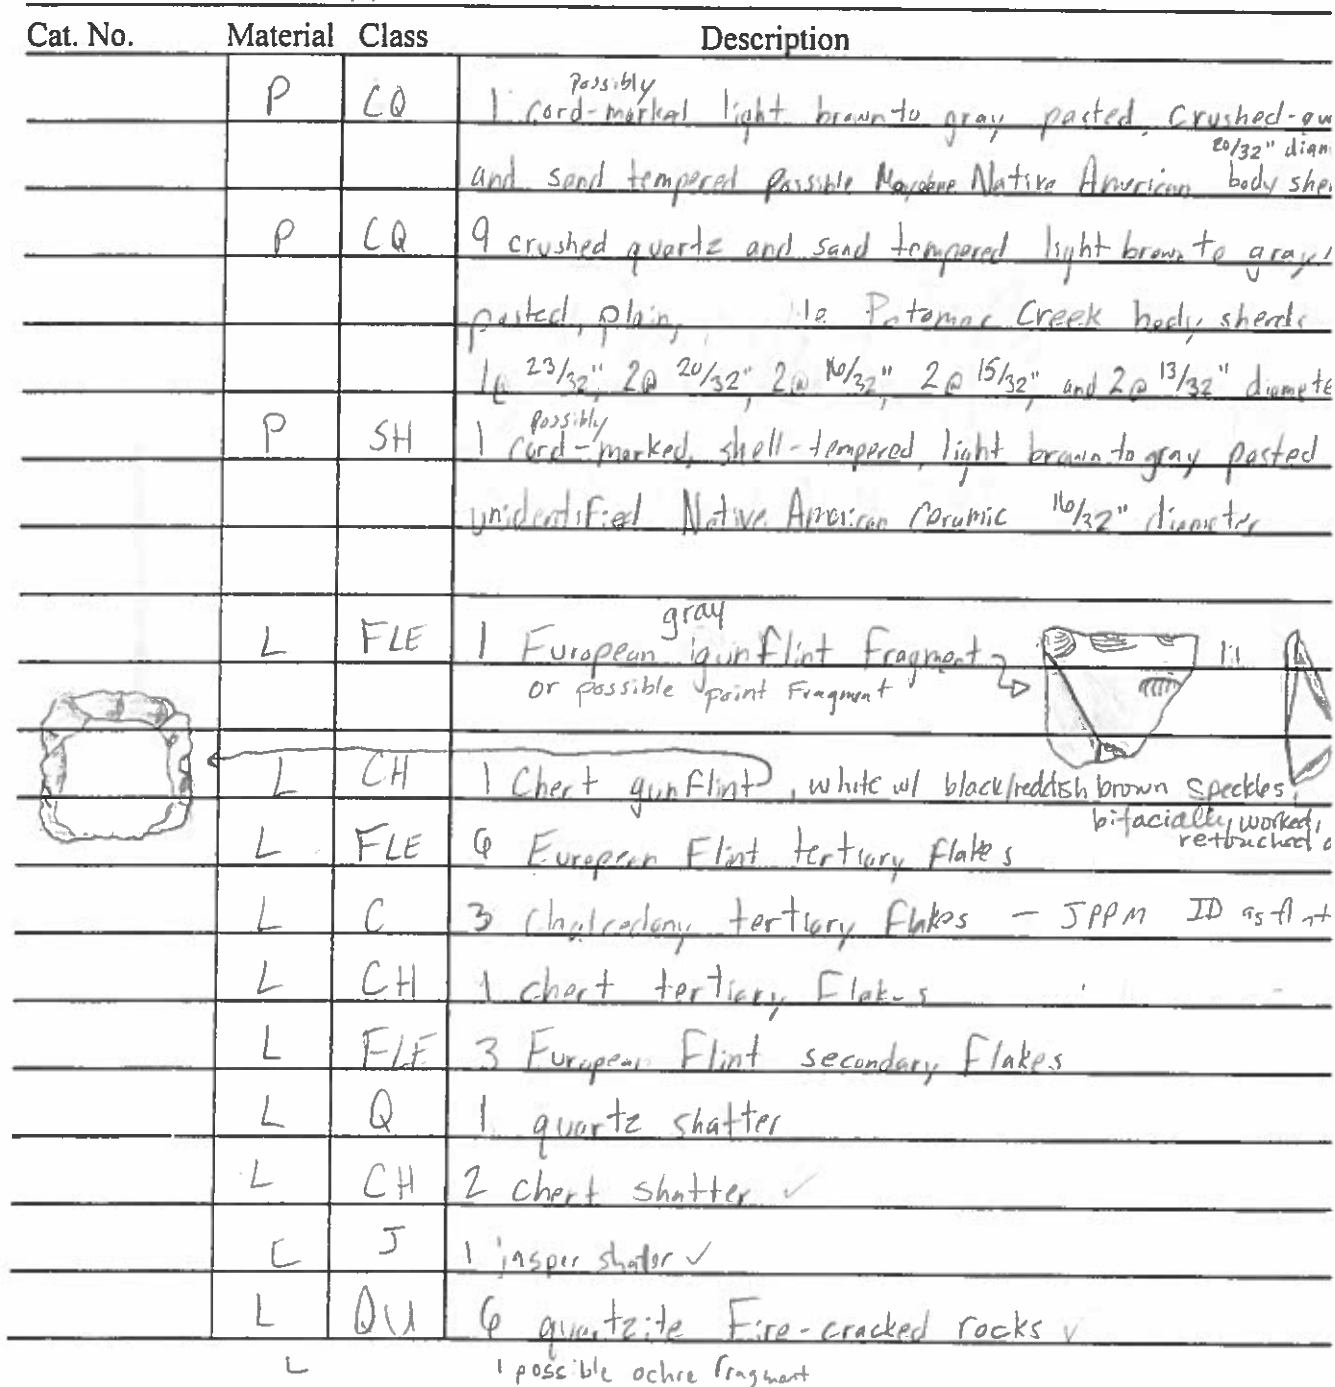 Cat. No. Material Class Description
possibly
P CQ 1 cord-marked light brown to gray pasted, crushed-qu
20/32" diam
and sand tempered possible Native American body she
P CQ 9 crushed quartz and sand tempered light brown to gray
pasted, plain, Potomac Creek body sherds
1@ 23/32", 2@ 20/32", 2@ 16/32", 2@ 15/32", and 2@ 13/32" diamete
possibly
P SH 1 cord-marked, shell-tempered, light brown to gray pasted
unidentified Native American Ceramic 16/32" diameter
gray
L FLE 1 European gunflint Fragment 1:1
or possible point Fragment
L CH 1 Chert gunflint, white w/ black/reddish brown speckles,
bifacially worked,
retouched
L FLE 6 European Flint tertiary flakes
L C 3 Chalcedony tertiary Flakes - JPPM ID as flint
L CH 1 chert tertiary Flakes
L FLE 3 European Flint secondary Flakes
L Q 1 quartz shatter
L CH 2 chert shatter ✓
L J 1 jasper shatter ✓
L QU 6 quartzite Fire-cracked rocks ✓
L 1 possible ochre fragment